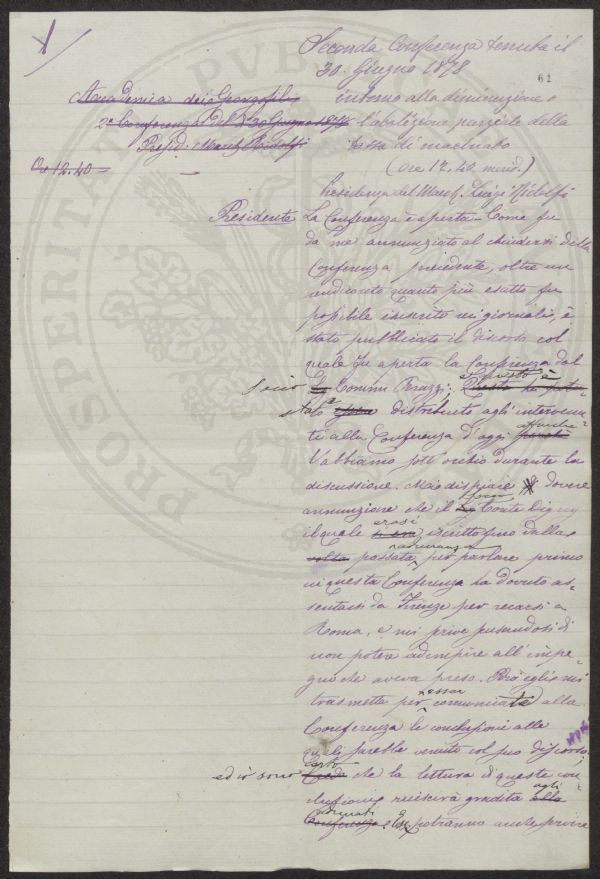 Seconda Conferenza tenuta il
30. Giugno 1878
61
Accademia dei Georgofili
2ª Conferenza del 30 Giugno 1878
Presid. March. Ridolfi
Ore 12.40 =
intorno alla diminuzione o
l'abolizione parziale della
tassa di macinato
(Ore 12.40 merid.)
Presidenza del March. Luigi Ridolfi
Presidente La Conferenza è aperta. Come fu
da me annunziato al chiudersi della
Conferenza precedente, oltre un
rendiconto quanto più esatto fu
possibile inserito ne' giornali, è
stato pubblicato il discorso col
quale fu aperta la Conferenza dal
Socio Comm. Peruzzi; e questo è
stato distribuito agli intervenu-
ti alla Conferenza d'oggi affinché
l'abbiamo sott'occhio durante la
discussione. Mi dispiace dovere
annunziare che il Conte Digny
il quale erasi iscritto fino dalla
passata adunanza per parlare primo
in questa Conferenza ha dovuto as-
sentarsi da Firenze per recarsi a
Roma, e mi prive
non poter adempire all'impe-
gno che aveva preso. Però egli mi
trasmette per esser comunicate alla
Conferenza le conclusioni alle
quali sarebbe venuto col suo discorso;
ed io sono certo che la lettura di queste con-
clusioni riuscirà gradita agli
adunati e potranno anche servire